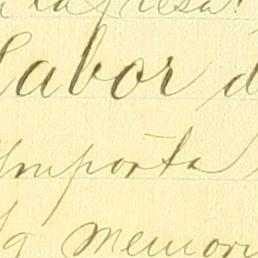 la presa.
labor d
Importa
la memori